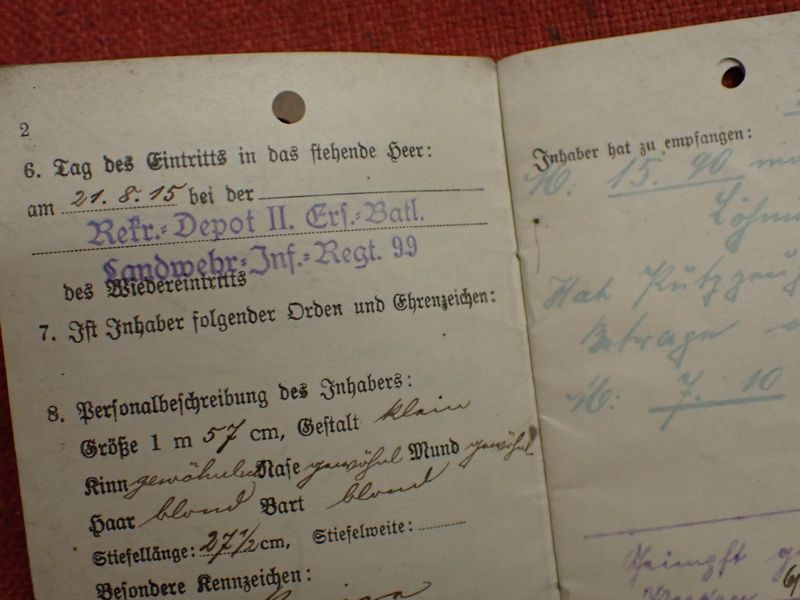 2
6. Tag des Eintritts in das stehende Heer:
am 21. 8. 15 bei der
Rekr.-Depot II. Ers.-Batl.
Landwehr-Inf.-Regt. 99
des Wiedereintritts
7. Ist Inhaber folgender Orden und Ehrenzeichen:
8. Personalbeschreibung des Inhabers:
Größe 1 m 57 cm, Gestalt klein
Kinn gewöhnlich Nase gewöhnl Mund gewöhnl
Haar blond Bart blond
Stiefellänge: 27 1/2 cm, Stiefelweite:
Besondere Kennzeichen:
Inhaber hat zu empfangen:
M: 15. 90
Hat Putzzeug
M: 7. 10
Geimpft